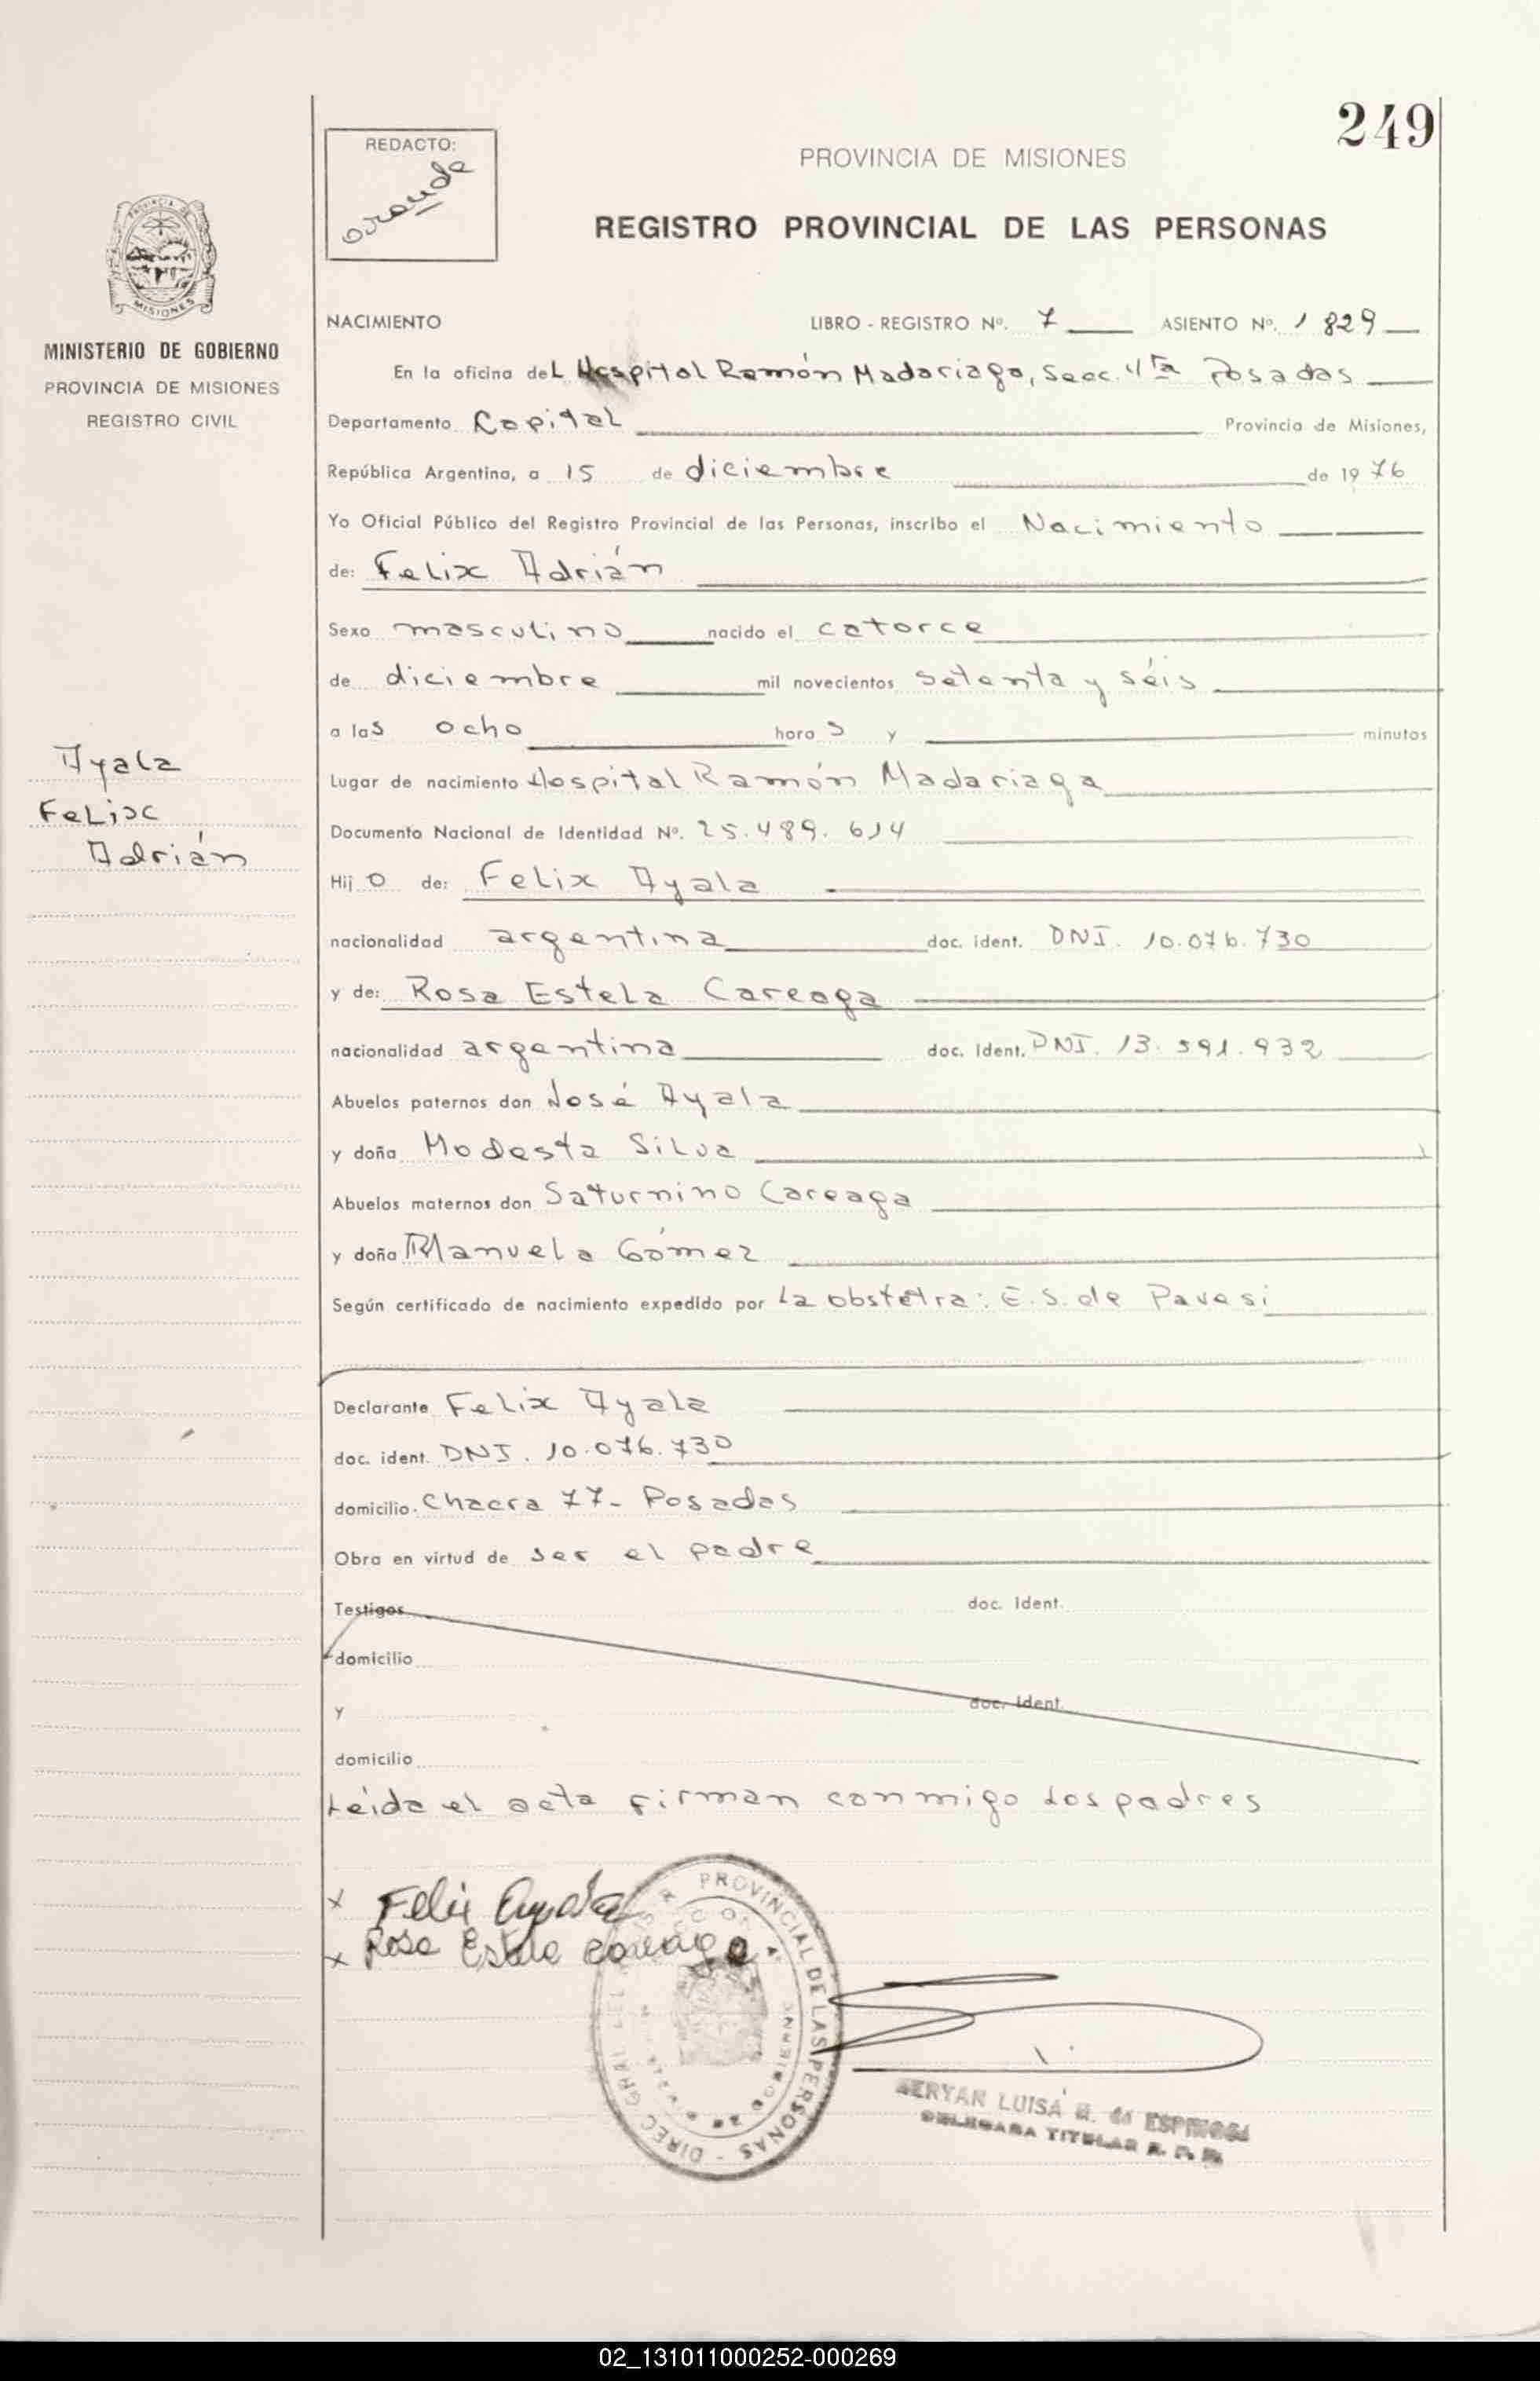 249
REDACTO:
PROVINCIA DE MISIONES
REGISTRO PROVINCIAL DE LAS PERSONAS
PROVINCIA DE
MISIONES
MINISTERIO DE GOBIERNO
PROVINCIA DE MISIONES
REGISTRO CIVIL
NACIMIENTO LIBRO - REGISTRO Nº. 7 ASIENTO Nº. 1829
En la oficina deL Hospital Ramón Madariaga, Secc. 4ta Posadas
Departamento Capital Provincia de Misiones,
República Argentina, a 15 de diciembre de 1976
Yo Oficial Público del Registro Provincial de las Personas, inscribo el Nacimiento
de: Felix Adrián
Sexo masculino nacido el catorce
de diciembre mil novecientos setenta y séis
a las ocho horas y minutos
Ayala
Felix
Adrián
Lugar de nacimiento Hospital Ramón Madariaga
Documento Nacional de Identidad Nº. 25.489.614
Hijo de: Felix Ayala
nacionalidad argentina doc. ident. DNI. 10.076.730
y de: Rosa Estela Careaga
nacionalidad argentina doc. Ident. DNI. 13.591.932
Abuelos paternos don José Ayala
y doña Modesta Silva
Abuelos maternos don Saturnino Careaga
y doña Manuela Gómez
Según certificado de nacimiento expedido por la obstétra: E.S. de Pavesi
Declarante Felix Ayala
doc. ident. DNI. 10.076.730
domicilio. Chacra 77- Posadas
Obra en virtud de ser el padre
Testigos doc. Ident.
domicilio
y doc. Ident.
domicilio
Leída el acta firman conmigo los padres
x Felix Ayala
x Rosa Estela Careaga
PROVINCIAL DE LAS PERSONAS - DIREC GRAL DEL
LUISA de ESPINOSA
DELEGADA TITULAR R. P. P.
02_131011000252-000269